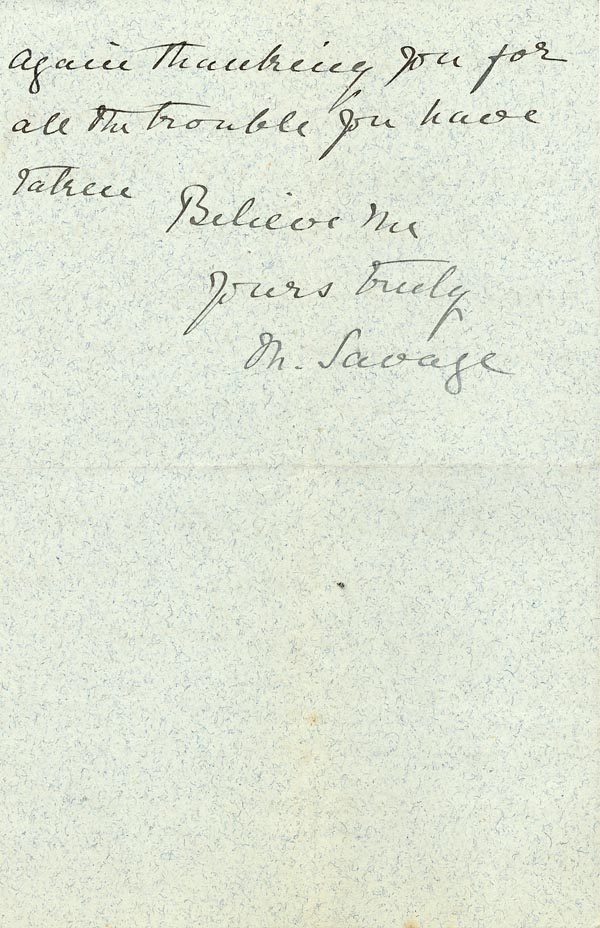 Again thanking you for
all the trouble you have
taken
Believe me
yours truly
M. Savage